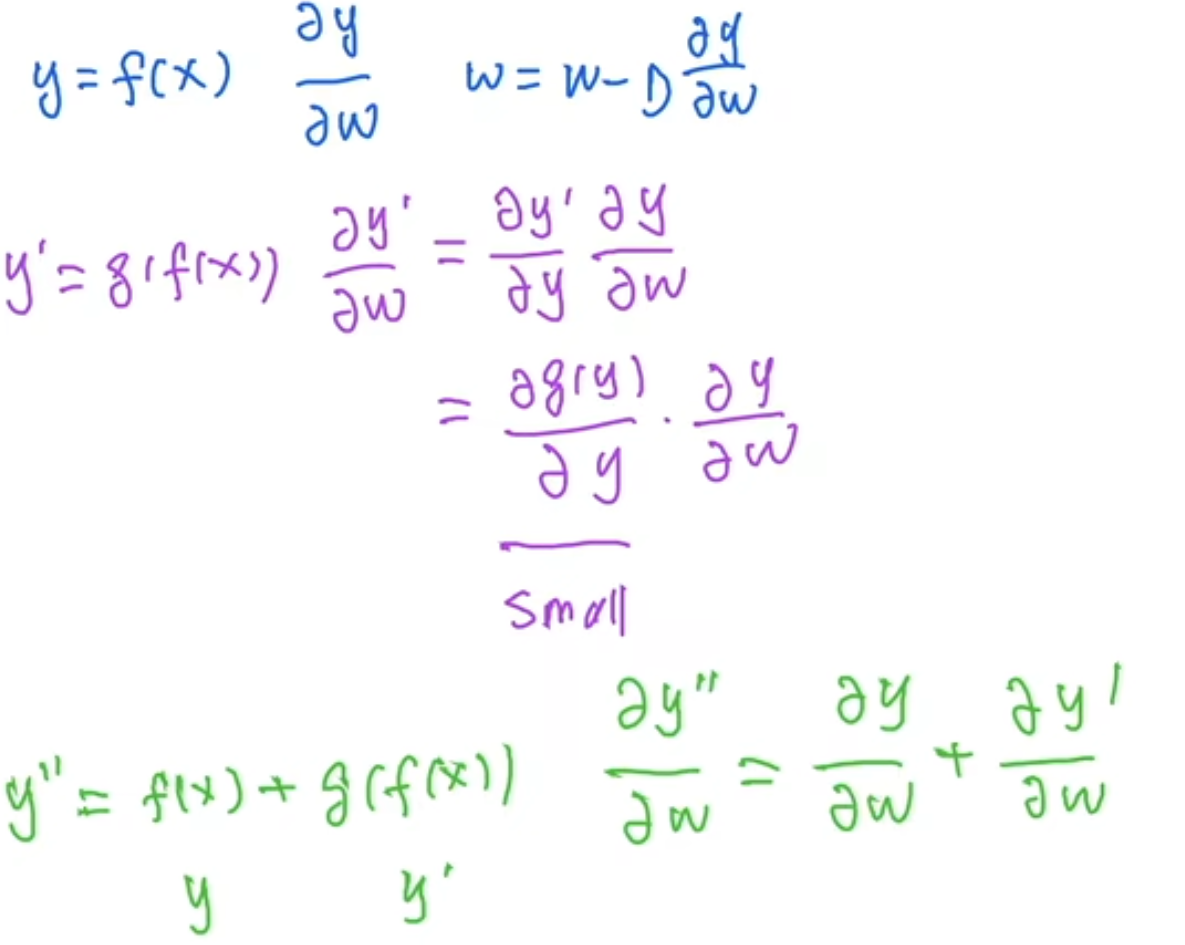 y = f(x) ∂y/∂w w = w - η ∂y/∂w
y' = g(f(x)) ∂y'/∂w = ∂y'/∂y ∂y/∂w
= ∂g(y)/∂y · ∂y/∂w
small
y'' = f(x) + g(f(x)) ∂y''/∂w = ∂y/∂w + ∂y'/∂w
y y'